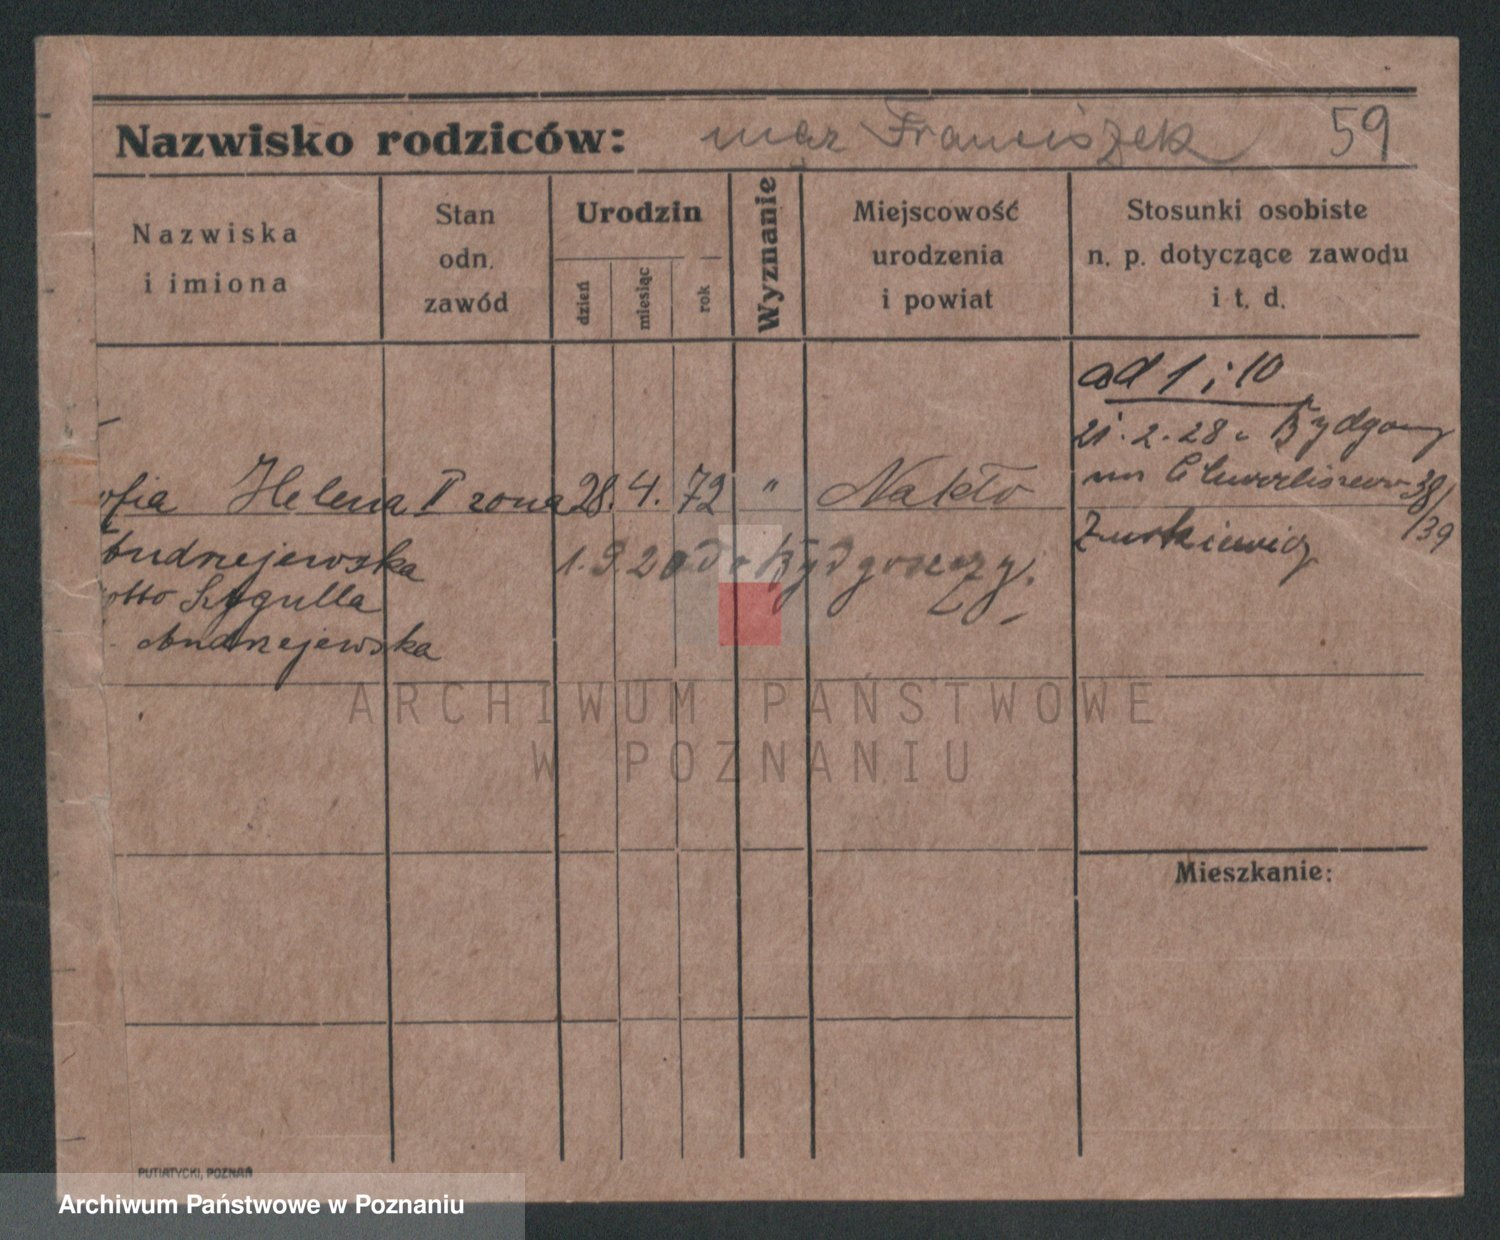 Nazwisko rodziców: Franciszek 59
Nazwiska
i imiona
Stan
odn.
zawód
Urodzin
dzień
miesiąc
rok
Wyznanie
Miejscowość
urodzenia
i powiat
Stosunki osobiste
n. p. dotyczące zawodu
i t. d.
ad 1 i 10
21.2.28 Bydgoszcz
ofia Helena II żona 28. 4. 72 " Nakło
39
Andrzejewska 1.9 20 do Bydgoszczy.
otto Szygulla
Andrzejewska
ARCHIWUM PAŃSTWOWE
W POZNANIU
Mieszkanie:
PUTIATYCKI, POZNAŃ
Archiwum Państwowe w Poznaniu